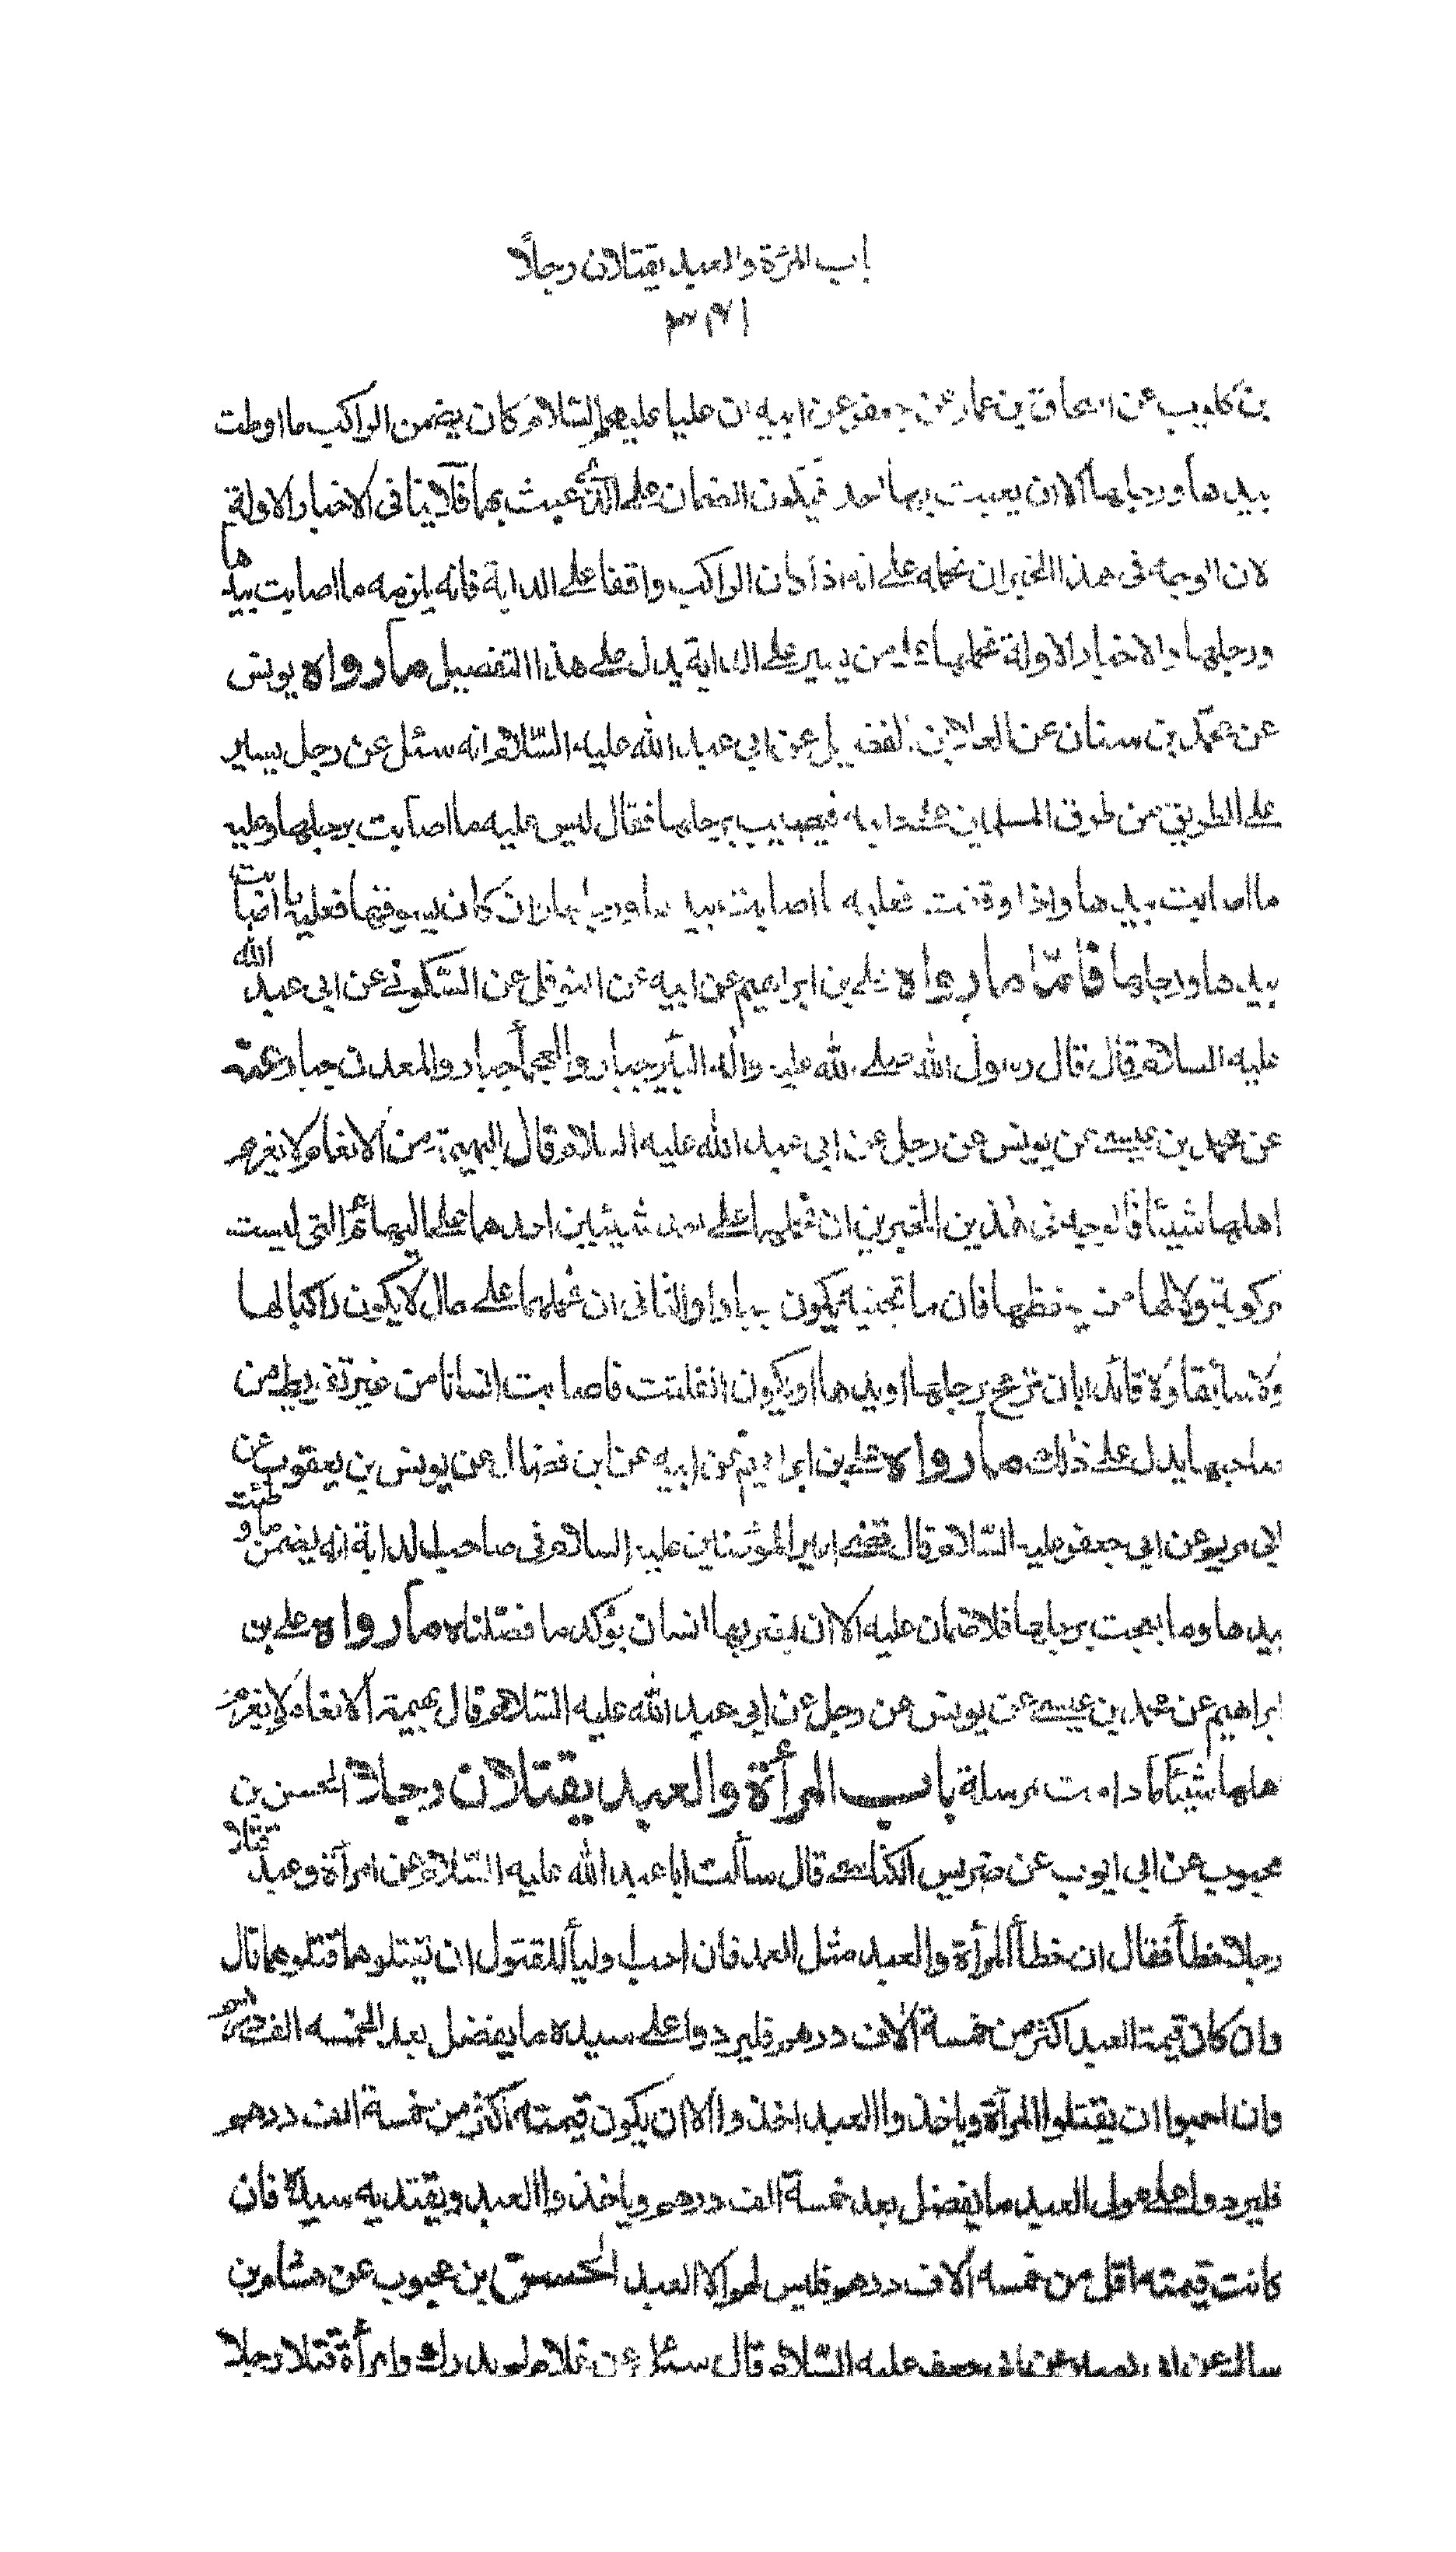 باب المرأة والعبد يقتلان رجلا
٣٤١
بن كليب عن اسحاق بن عمار عن جعفر عن ابيه ان عليا عليهم السلام كان يضمن الراكب ما اوطئت
بيدها ورجلها الا ان يعبث بها احد فيكون الضمان على الذى عبث بها فلا ينافى الاخبار الاولة
لان الوجه فى هذا الخبر ان نحمله على انه اذا كان الراكب واقفا على الدابة فانه يلزمه ما اصابت بيدها
ورجلها والاخبار الاولة نحملها على من يسير على الدابة يدل على هذا التفصيل ما رواه يونس
عن محمد بن سنان عن العلا بن الفضيل عن ابى عبد الله عليه السلام انه سئل عن رجل يسير
على الطريق من طرق المسلمين على دابه فيصيب برجلها فقال ليس عليه ما اصابت برجلها وعليه
ما اصابت بيدها واذا وقفت فعليه ما اصابت بيدها ورجلها وان كان يسوقها فعليه ما اصابت
بيدها ورجلها فأمّا ما رواه على بن ابراهيم عن ابيه عن النوفلى عن السّكونى عن ابى عبد الله
عليه السلام قال قال رسول الله صلى الله عليه واله البئر جبار والعجماء جبار والمعدن جبار عنه
عن محمد بن عيسى عن يونس عن رجل عن ابى عبد الله عليه السلام قال البهيمة من الانعام لا يغرم
اهلها شيئا فالوجه فى هذين الخبرين ان نحملهما على احد شيئين احدهما على البهائم التى ليست
مركوبة ولا لها من يحفظها فان ما تجنيه يكون جبارا والثانى ان نحملهما على حال لا يكون راكبا لها
ولا سايقا ولا قائدا بان ترمح برجلها او يدها او يكون انفلتت فاصابت انسانا من غير تفريط من
صاحبها يدل على ذلك ما رواه على بن ابراهيم عن ابيه عن ابن فضال عن يونس بن يعقوب عن
ابى مريم عن ابى جعفر عليه السّلام قال قضى امير المؤمنين عليه السلام فى صاحب الدابة انه يضمن ما وطئت
بيدها وما بعجت برجلها فلا ضمان عليه الا ان يضربها انسان يؤكد ما فصّلناه ما رواه على بن
ابراهيم عن محمد بن عيسى عن يونس عن رجل عن ابى عبد الله عليه السّلام قال بهيمة الانعام لا يغرم
اهلها شيئا ما دامت مرسلة باب المرأة والعبد يقتلان رجلا الحسن بن
محبوب عن ابى ايوب عن ضريس الكناسى قال سألت ابا عبد الله عليه السّلام عن امرأة وعبد قتلا
رجلا خطأ فقال ان خطأ المرأة والعبد مثل العمد فان احب وليا المقتول ان يقتلوهما قتلوهما قال
وان كان قيمة العبد اكثر من خمسة آلاف درهم فليردوا على سيده ما يفضل بعد الخمسه الف درهم
وان احبوا ان يقتلوا المرأة وياخذوا العبد اخذوا الا ان يكون قيمته اكثر من خمسة الف درهم
فليردوا على مولى العبد ما يفضل بعد خمسة الف درهم وياخذوا العبد ويفتديه سيده فان
كانت قيمته اقل من خمسه آلاف درهم فليس لهم الا العبد الحسن بن محبوب عن هشام بن
سالم عن ابى بصير عن ابى جعفر عليه السّلام قال سئل عن غلام لم يدرك وامرأة قتلا رجلا